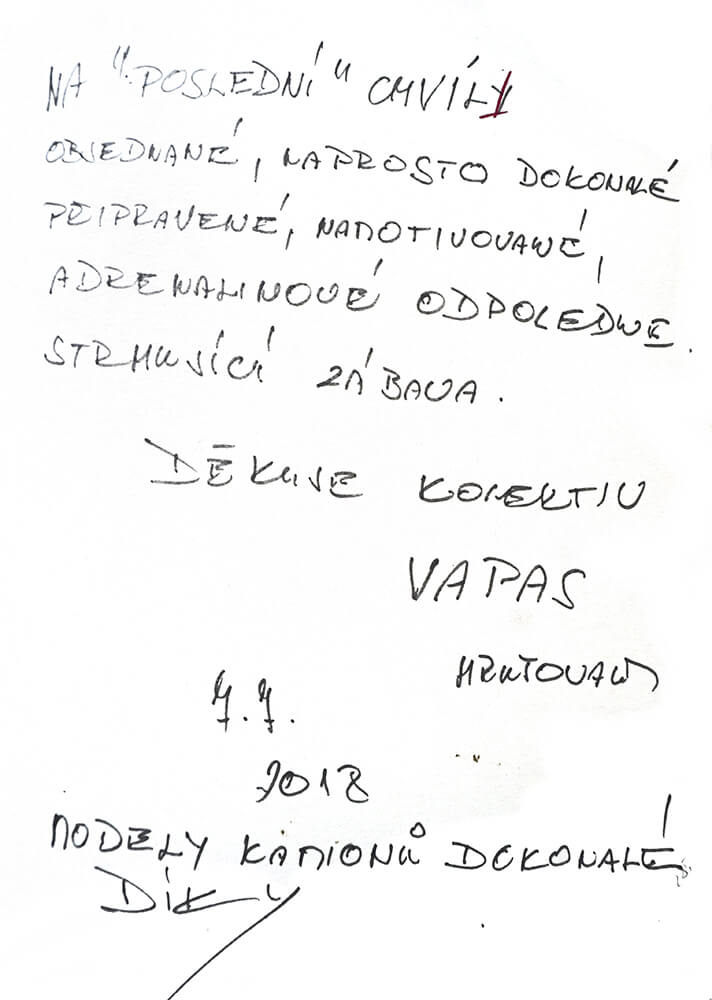 NA "POSLEDNÍ" CHVÍLI
OBJEDNANÉ, NAPROSTO DOKONALÉ
PŘIPRAVENÉ, NAMOTIVOVANÉ,
ADRENALINOVÉ ODPOLEDNE.
STRHUJÍCÍ ZÁBAVA.
DĚKUJE KOLEKTIV
VAPAS
7.7.
2018
MODELY KAMIONŮ DOKONALÉ
DÍKY